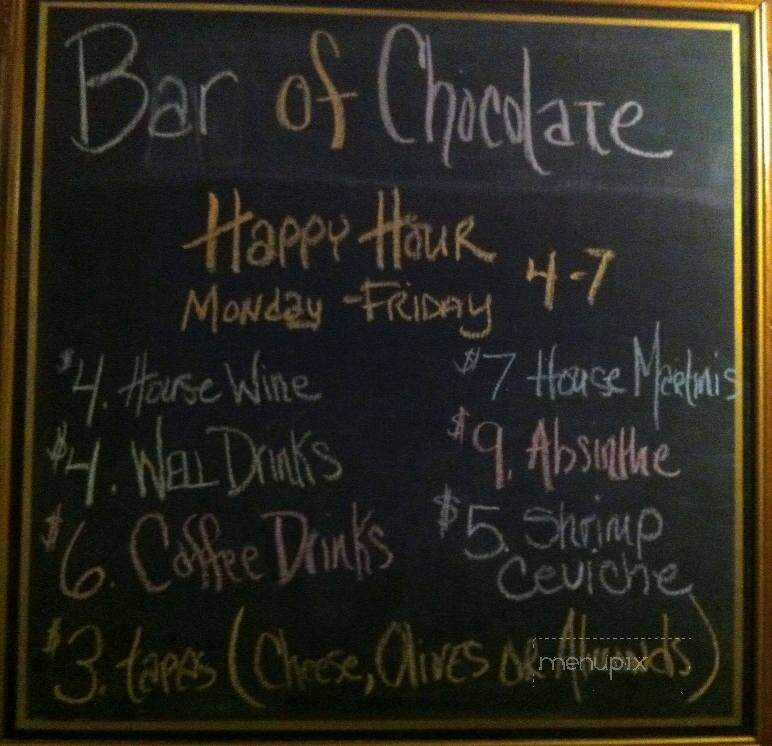 Bar of Chocolate
Happy Hour
Monday - Friday 4-7
$4. House Wine
$4. Well Drinks
$6. Coffee Drinks
$7. House Martinis
$9. Absinthe
$5. Shrimp
Ceviche
$3. tapas (Cheese, Olives or Almonds)
menupix